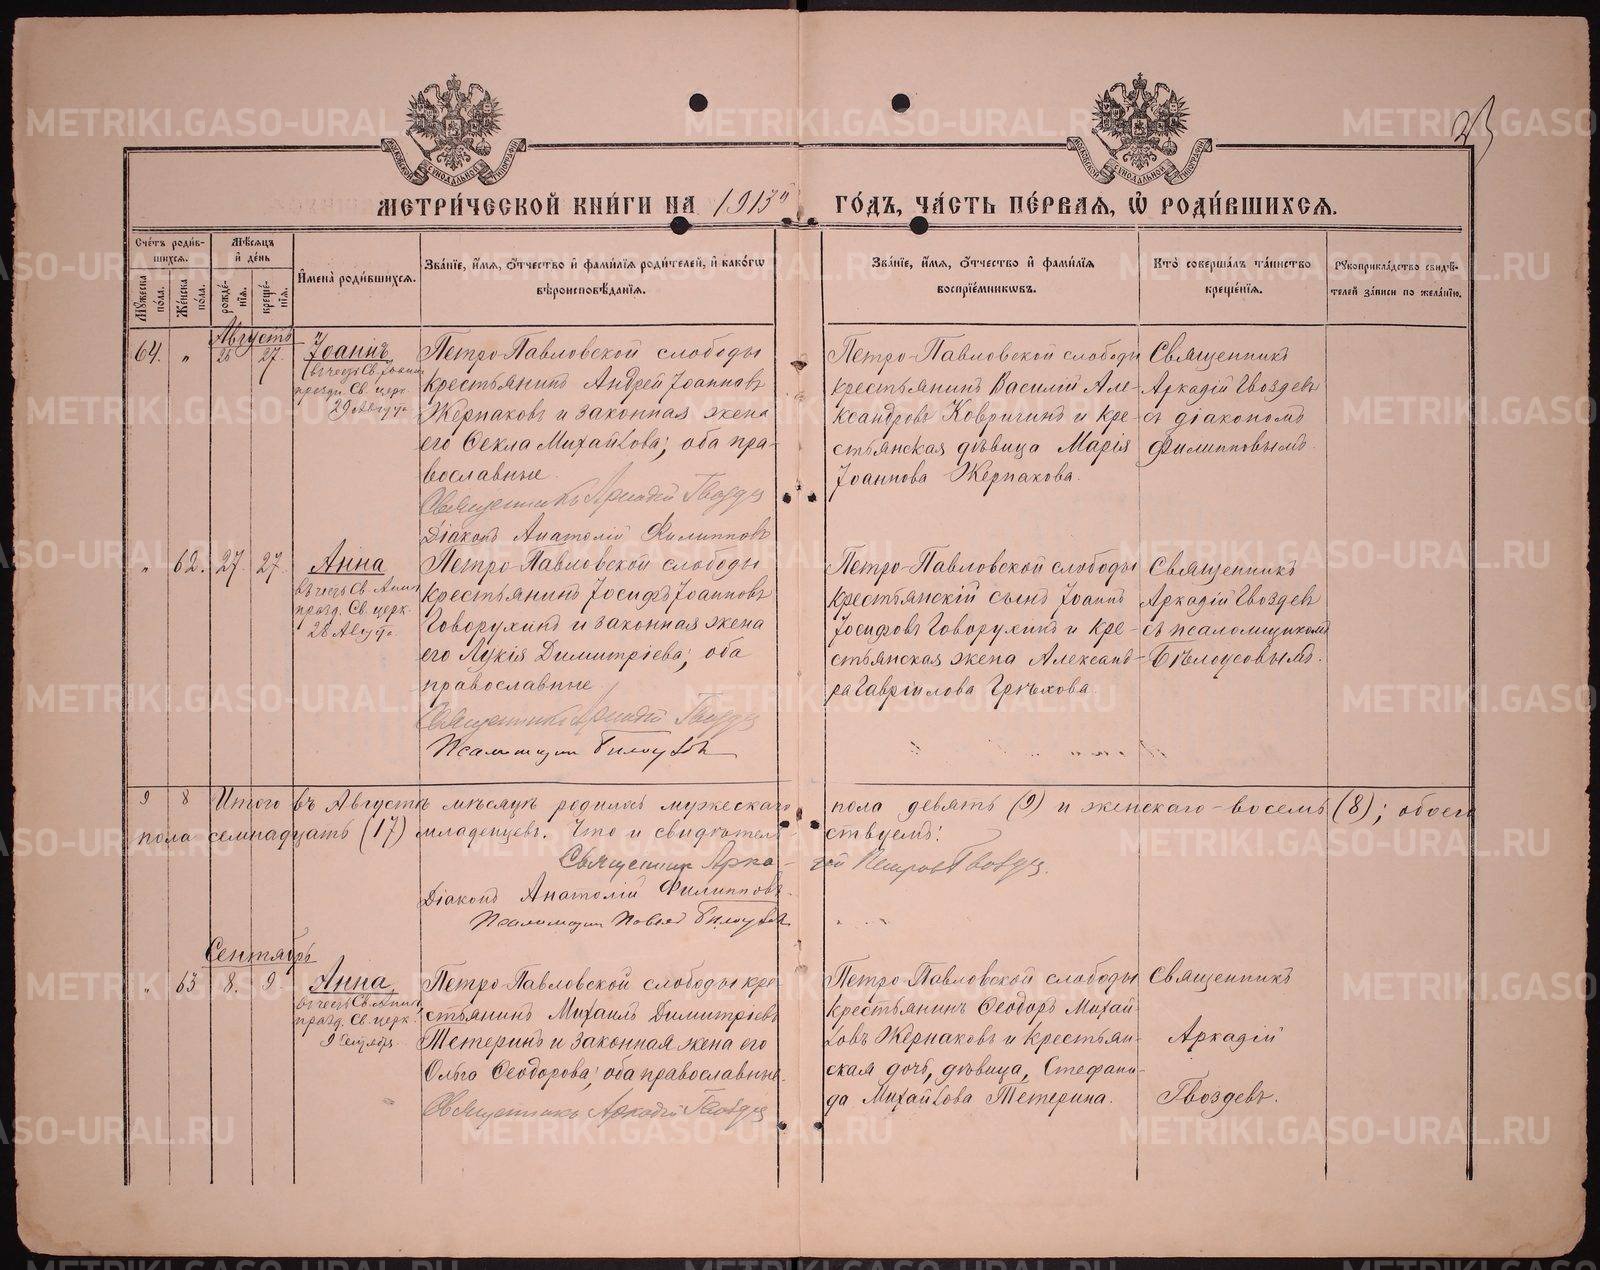 23
МОСКОВСКОЙ СѴНОДАЛЬНОЙ ТИПОГРАФІИ
МОСКОВСКОЙ СѴНОДАЛЬНОЙ ТИПОГРАФІИ
МЕТРИ́ЧЕСКОЙ КНИ́ГИ НА 1913й ГО́ДЪ, ЧА́СТЬ ПЕ́РВАЯ, Ѡ҆ РОДИ́ВШИХСЯ.
Сче́тъ роди́в-
шихся.
Му́жеска
по́ла.
Же́нска
по́ла.
Мѣ́сяцъ
и҆ де́нь
рожде́-
нїя.
креще́-
нїя.
И҆мена̀ роди́вшихся.
Зва́нїе, и҆́мя, ѻ҆́тчество и҆ фами́лїя роди́телей, и҆ како́гѡ
вѣроисповѣ́данїя.
Зва́нїе, и҆́мя, ѻ҆́тчество и҆ фами́лїя
воспрїе́мникѡвъ.
Кто̀ соверша́лъ та́инство
креще́нїя.
Рꙋкоприкла́дство свидѣ́-
телей за́писи по жела́нїю.
Августъ
64. " 25 27. Іоаннъ
въ честь Св. Іоанна
праздн. Св. церк.
29 Августа
Петро-Павловской слободы
крестьянинъ Андрей Іоанновъ
Жернаковъ и законная жена
его Ѳекла Михайлова; оба пра-
вославные.
Священникъ Аркадій Гвоздев
Діаконъ Анатолій Филипповъ
Петро-Павловской слободы
крестьянинъ Василій Але-
ксандровъ Ковригинъ и кре-
стьянская дѣвица Марія
Іоаннова Жернакова.
Священникъ
Аркадій Гвоздевъ
съ діакономъ
Филипповымъ.
" 62. 27. 27. Анна
въ честь Св. Анны
празд. Св. церк.
28 Августа.
Петро-Павловской слободы
крестьянинъ Іосифъ Іоанновъ
Говорухинъ и законная жена
его Лукія Димитріева; оба
православные.
Священникъ Аркадій Гвоздев
Псаломщик Белоусов
Петро-Павловской слободы
крестьянскій сынъ Іоаннъ
Іосифовъ Говорухинъ и кре-
стьянская жена Александ-
ра Гавріилова Грѣхова.
Священникъ
Аркадій Гвоздевъ
съ псаломщикомъ
Бѣлоусовымъ.
9 8 Итого въ Августѣ мѣсяцѣ родилось мужескаго пола девять (9) и женскаго - восемь (8); обоего
пола семнадцать (17) младенцевъ. Что и свидѣтельствуемъ:
Священник Аркадій Петров Гвоздев.
Діаконъ Анатолій Филипповъ.
Псаломщик Павел Белоусов
Сентябрь
" 63 8. 9. Анна
въ честь Св. Анны,
празд. Св. церк.
9 Сентября
Петро-Павловской слободы кре-
стьянинъ Михаилъ Димитріевъ
Тетеринъ и законная жена его
Ольга Ѳеодорова; оба православные.
Священникъ Аркадій Гвоздев
Петро-Павловской слободы
крестьянинъ Ѳеодоръ Михай-
ловъ Жернаковъ и крестьян-
ская дочь, дѣвица, Стефани-
да Михайлова Тетерина.
Священникъ
Аркадій
Гвоздевъ.
METRIKI.GASO-URAL.RU